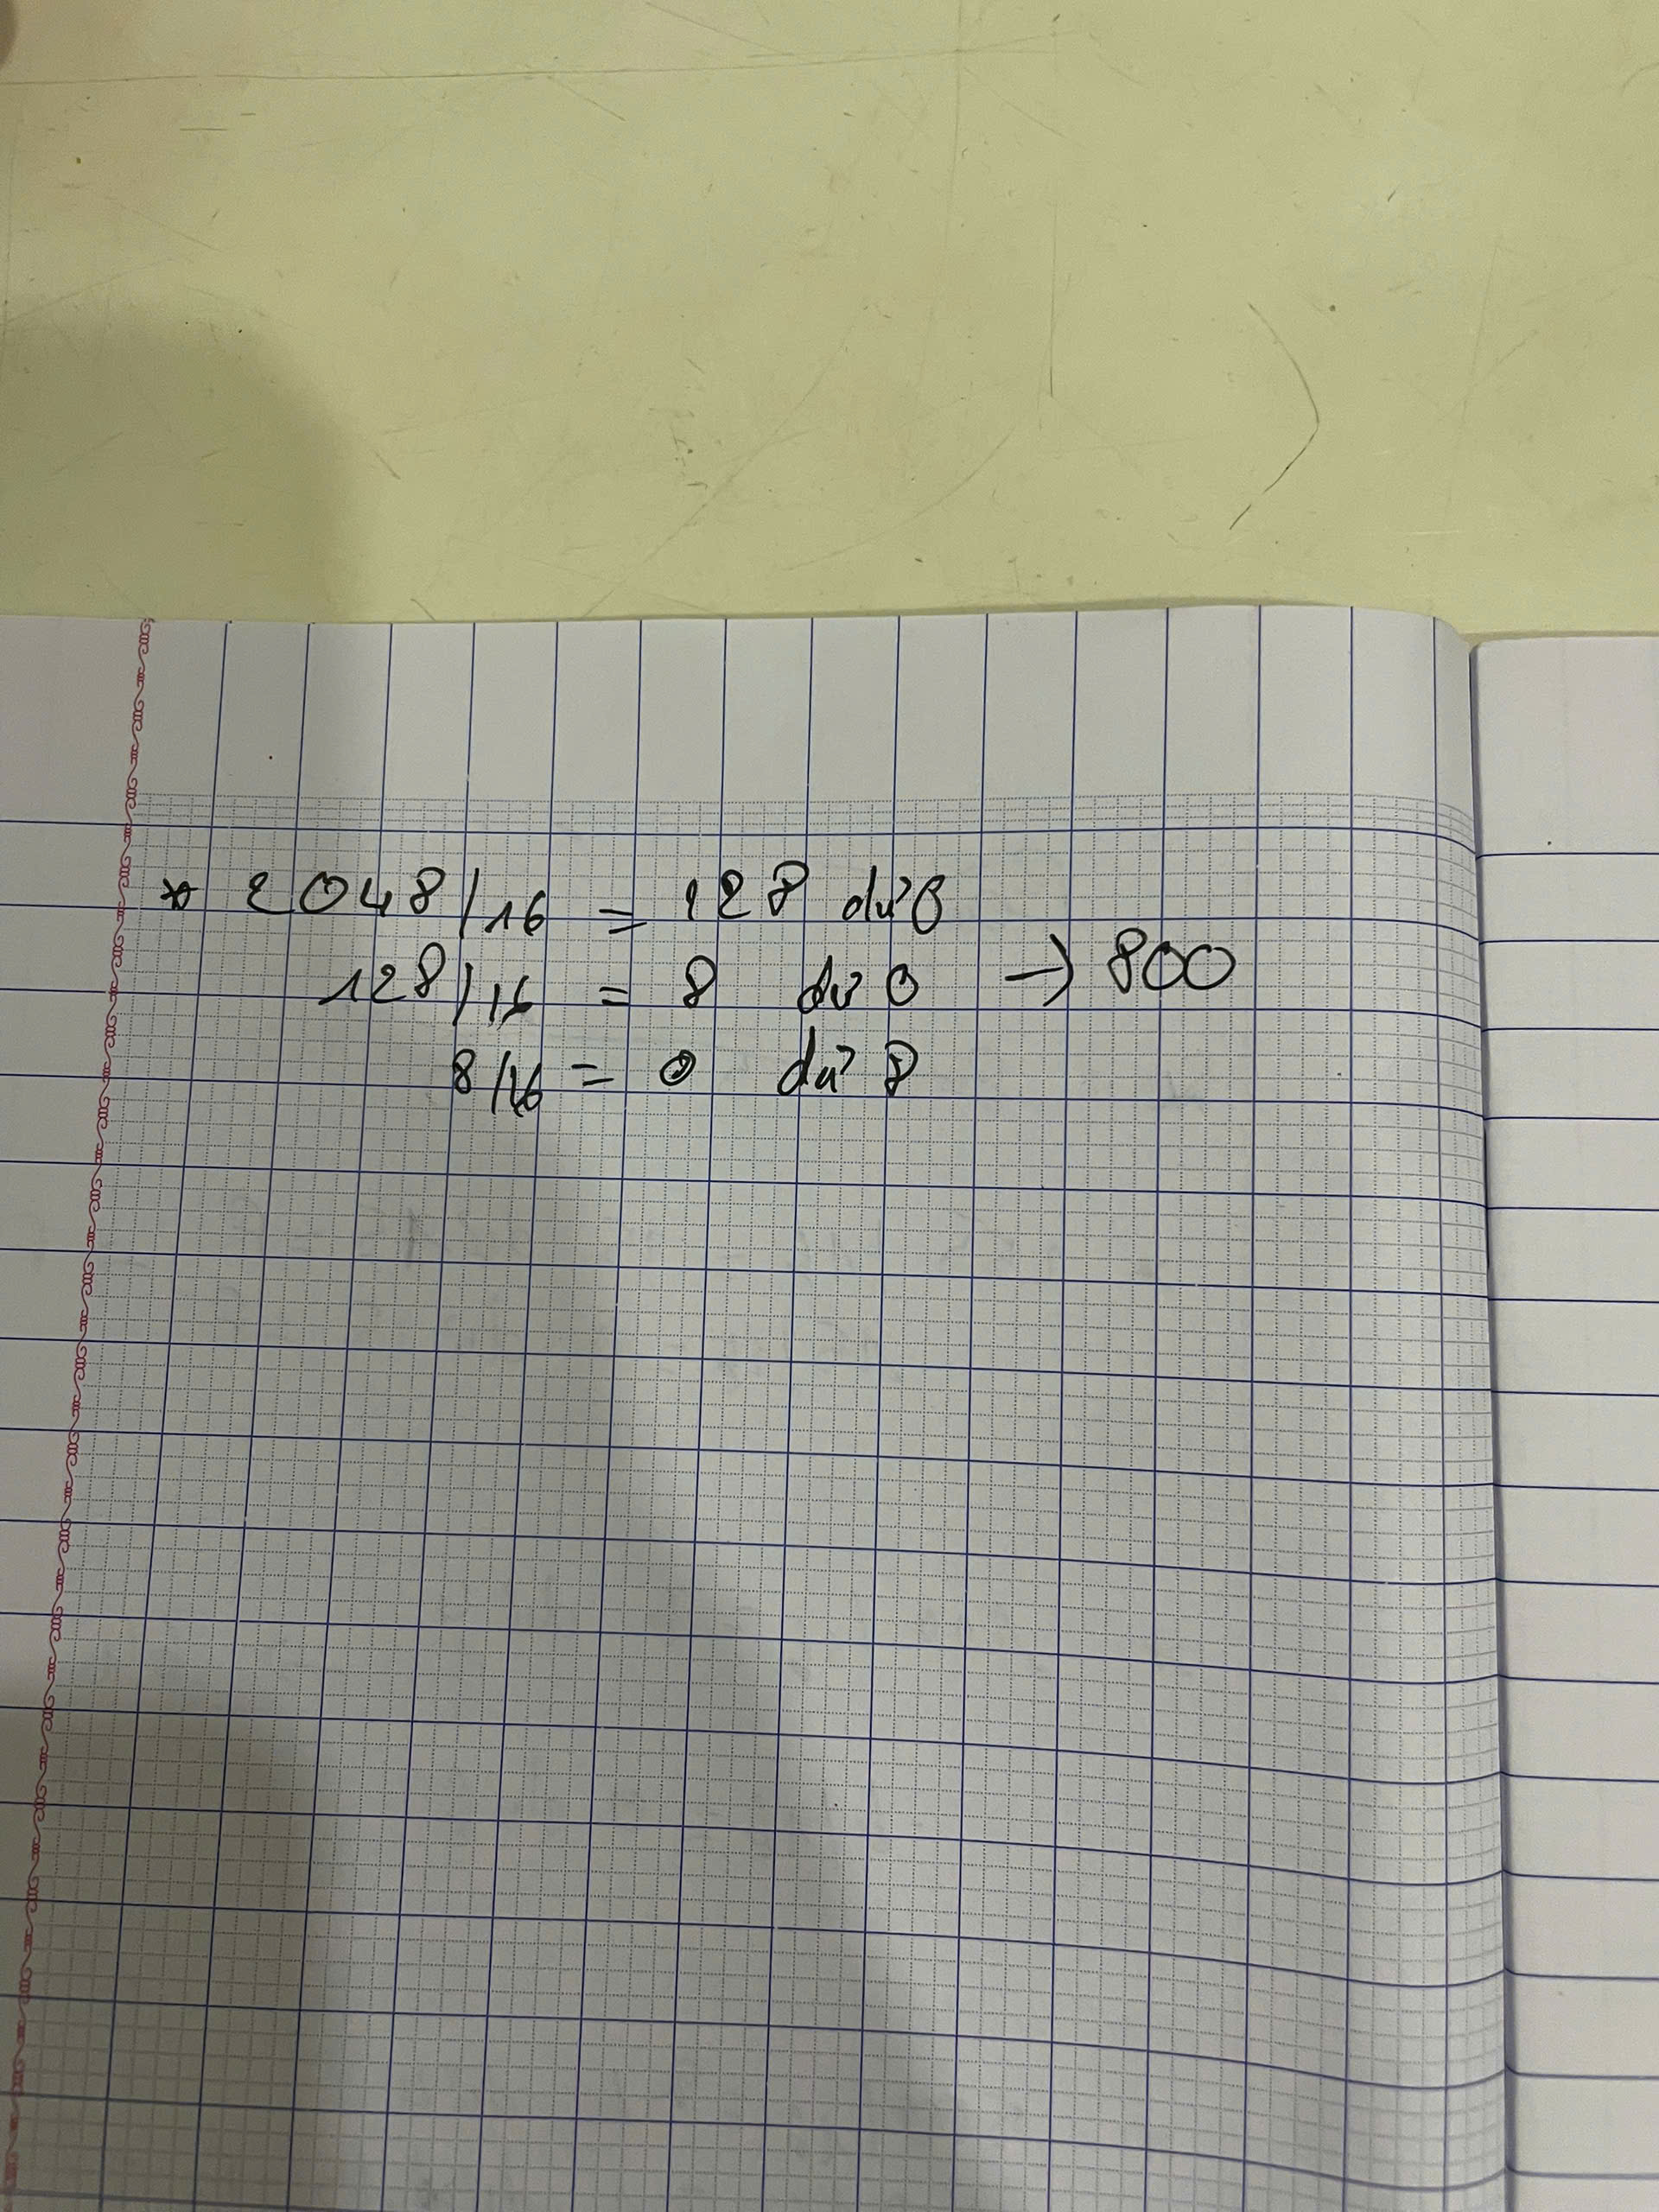 * 2048/16 = 128 dư 0
128/16 = 8 dư 0 → 800
8/16 = 0 dư 8